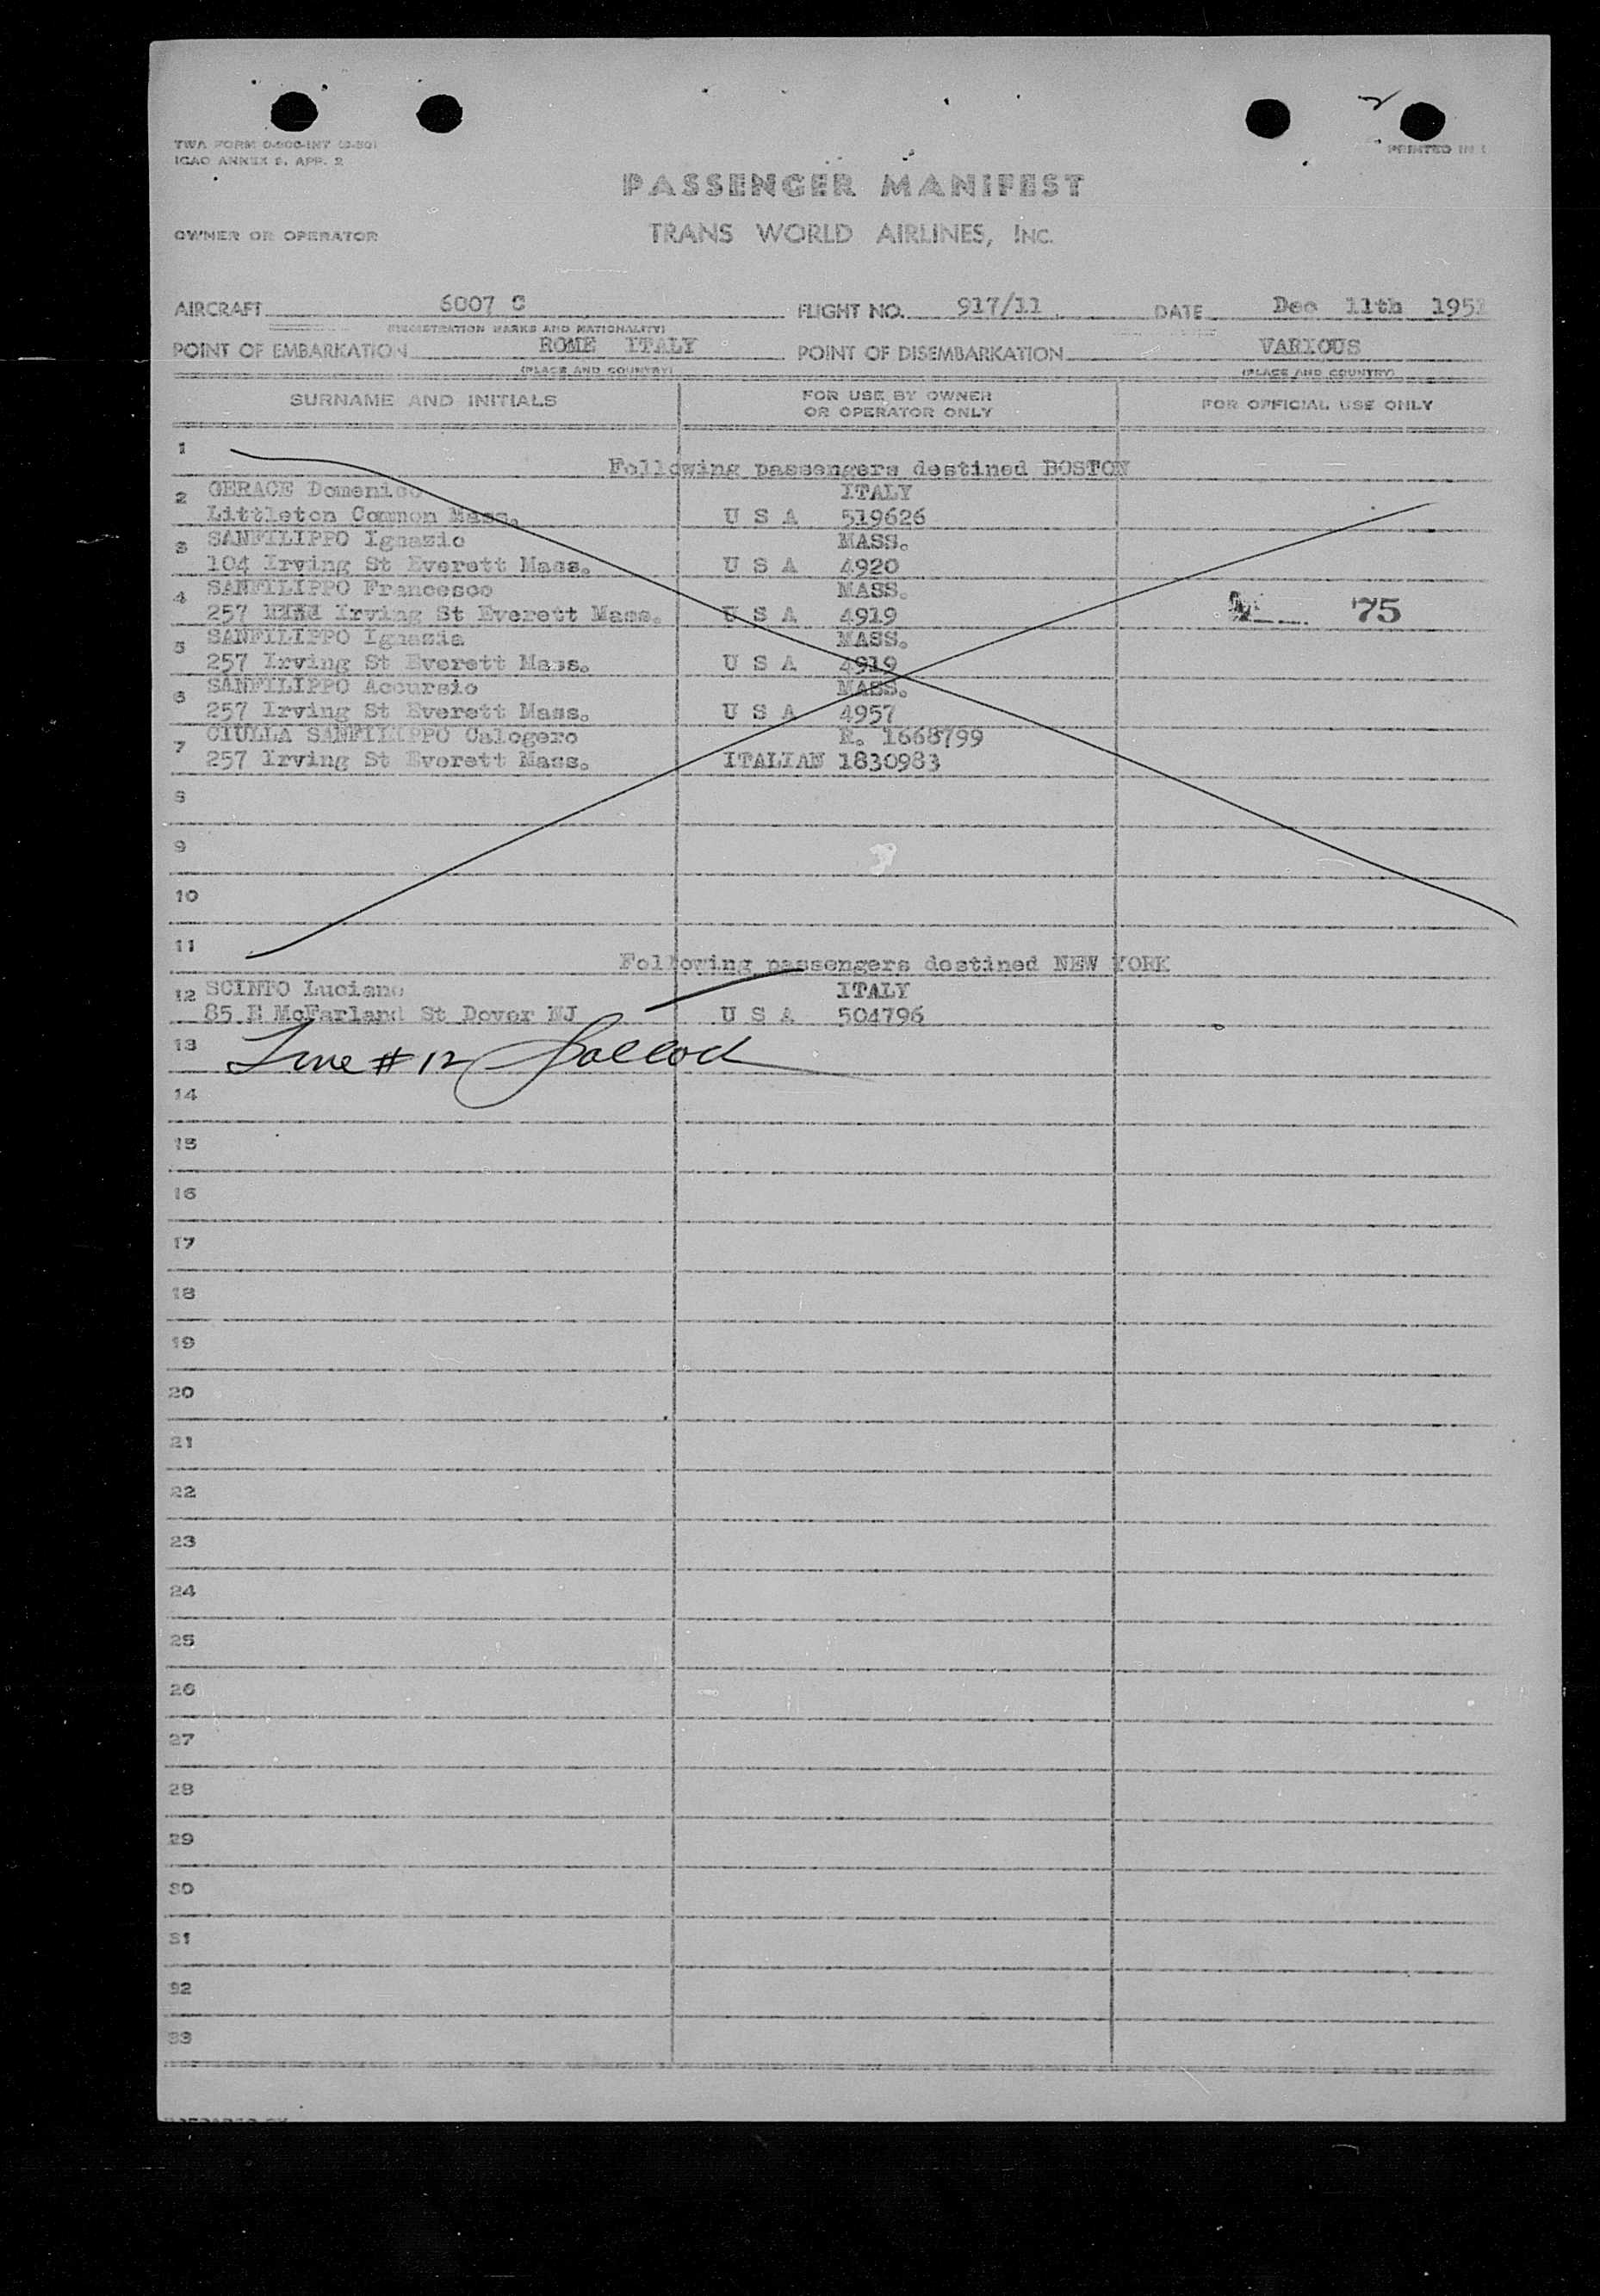 TWA FORM
ICAO ANNEX 9, APP. 2
PRINTED IN
PASSENGER MANIFEST
OWNER OR OPERATOR TRANS WORLD AIRLINES, INC.
AIRCRAFT 6007 C FLIGHT NO. 917/11 DATE Dec 11th 1951
(REGISTRATION MARKS AND NATIONALITY)
POINT OF EMBARKATION ROME ITALY POINT OF DISEMBARKATION VARIOUS
(PLACE AND COUNTRY) (PLACE AND COUNTRY)
SURNAME AND INITIALS FOR USE BY OWNER OR OPERATOR ONLY FOR OFFICIAL USE ONLY
1
Following passengers destined BOSTON
2 GERACE Domenico ITALY
Littleton Common Mass. U S A 519626
3 SANFILIPPO Ignazio MASS.
104 Irving St Everett Mass. U S A 4920
4 SANFILIPPO Francesco MASS.
257 Irving St Everett Mass. U S A 4919 75
5 SANFILIPPO Ignazia MASS.
257 Irving St Everett Mass. U S A 4919
6 SANFILIPPO Accursio MASS.
257 Irving St Everett Mass. U S A 4957
7 CIULLA SANFILIPPO Calogero E. 1668799
257 Irving St Everett Mass. ITALIAN 1830983
8
9
10
11
Following passengers destined NEW YORK
12 SCINTO Luciano ITALY
85 E McFarland St Dover NJ U S A 504796
13 Line # 12
14
15
16
17
18
19
20
21
22
23
24
25
26
27
28
29
30
31
32
33